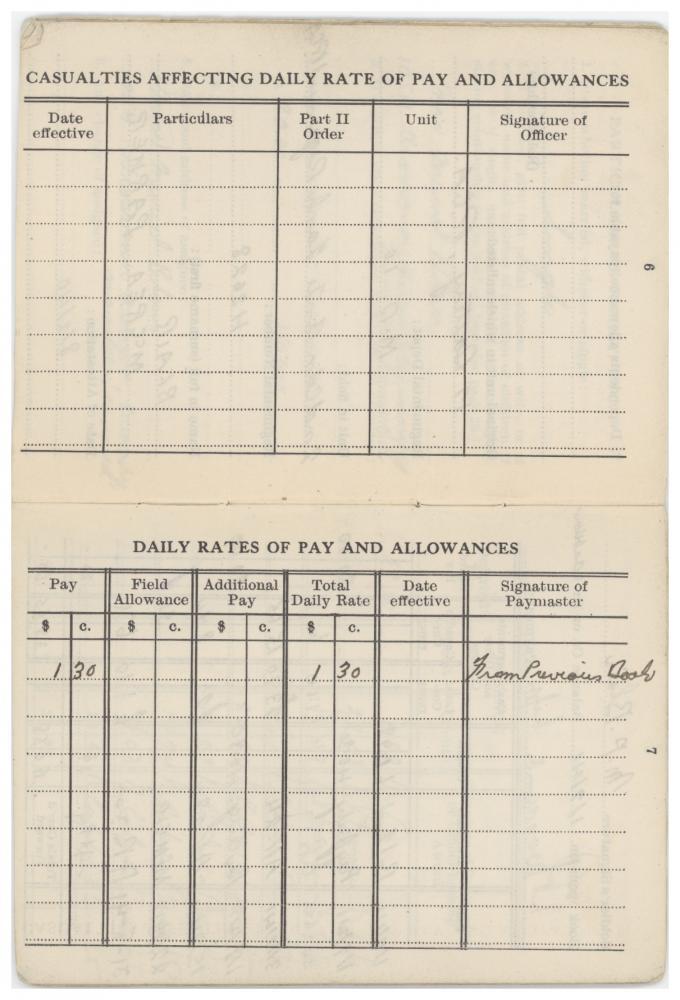 CASUALTIES AFFECTING DAILY RATE OF PAY AND ALLOWANCES
Date effective Particulars Part II Order Unit Signature of Officer
6
DAILY RATES OF PAY AND ALLOWANCES
Pay Field Allowance Additional Pay Total Daily Rate Date effective Signature of Paymaster
$ c. $ c. $ c. $ c.
1 30 1 30 From Previous Book
7